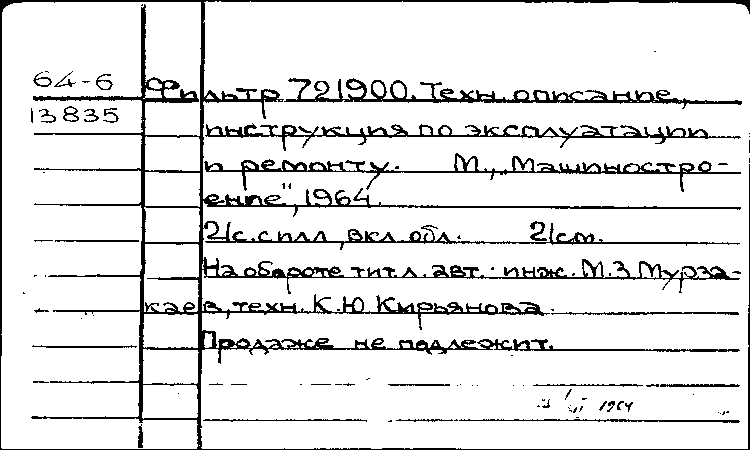 64-6 Фильтр 721900. Техн. описание,
13835 инструкция по эксплуатации
и ремонту. М., „Машиностро-
ение", 1964.
21с. с илл., вкл. обл. 21см.
На обороте тит. л. авт.: инж. М.З Мурза-
каев, техн. К.Ю Кирьянова.
Продаже не подлежит.
1964